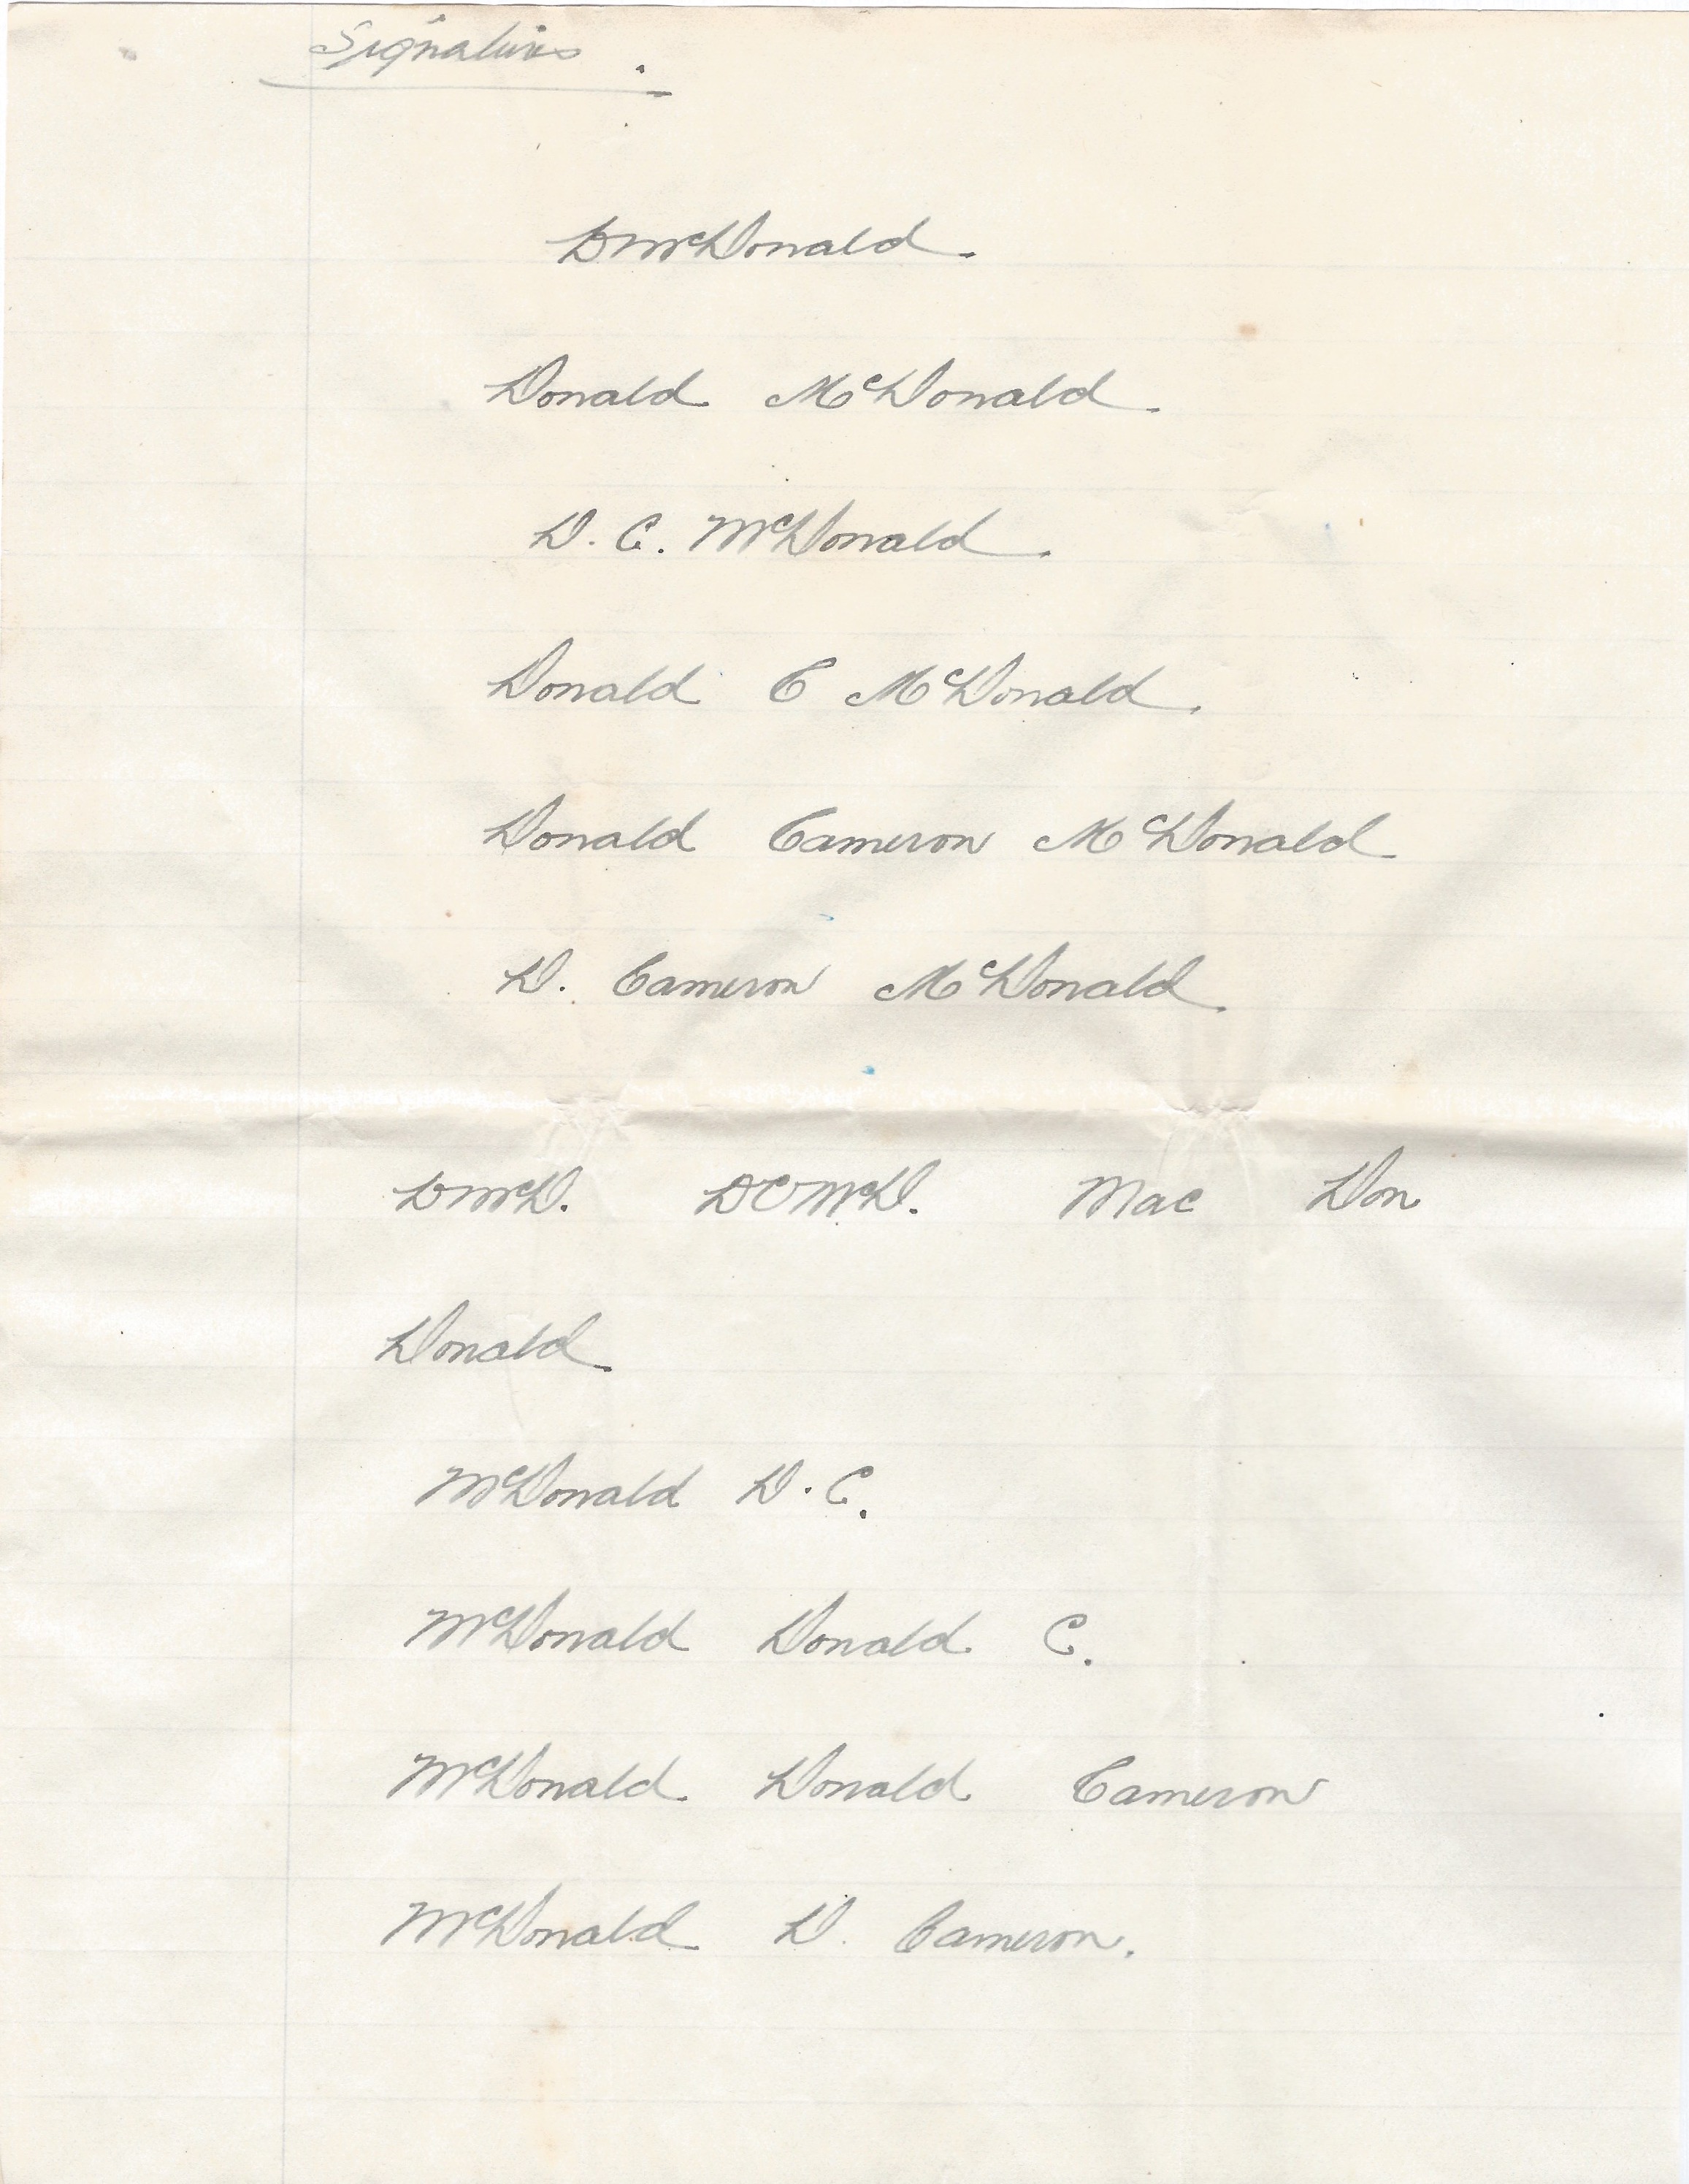 Signatures.
DMcDonald.
Donald McDonald.
D. C. McDonald.
Donald C McDonald.
Donald Cameron McDonald
D. Cameron McDonald.
DMcD. DCMcD. Mac Don
Donald.
McDonald D. C.
McDonald Donald C.
McDonald. Donald. Cameron
McDonald D. Cameron.